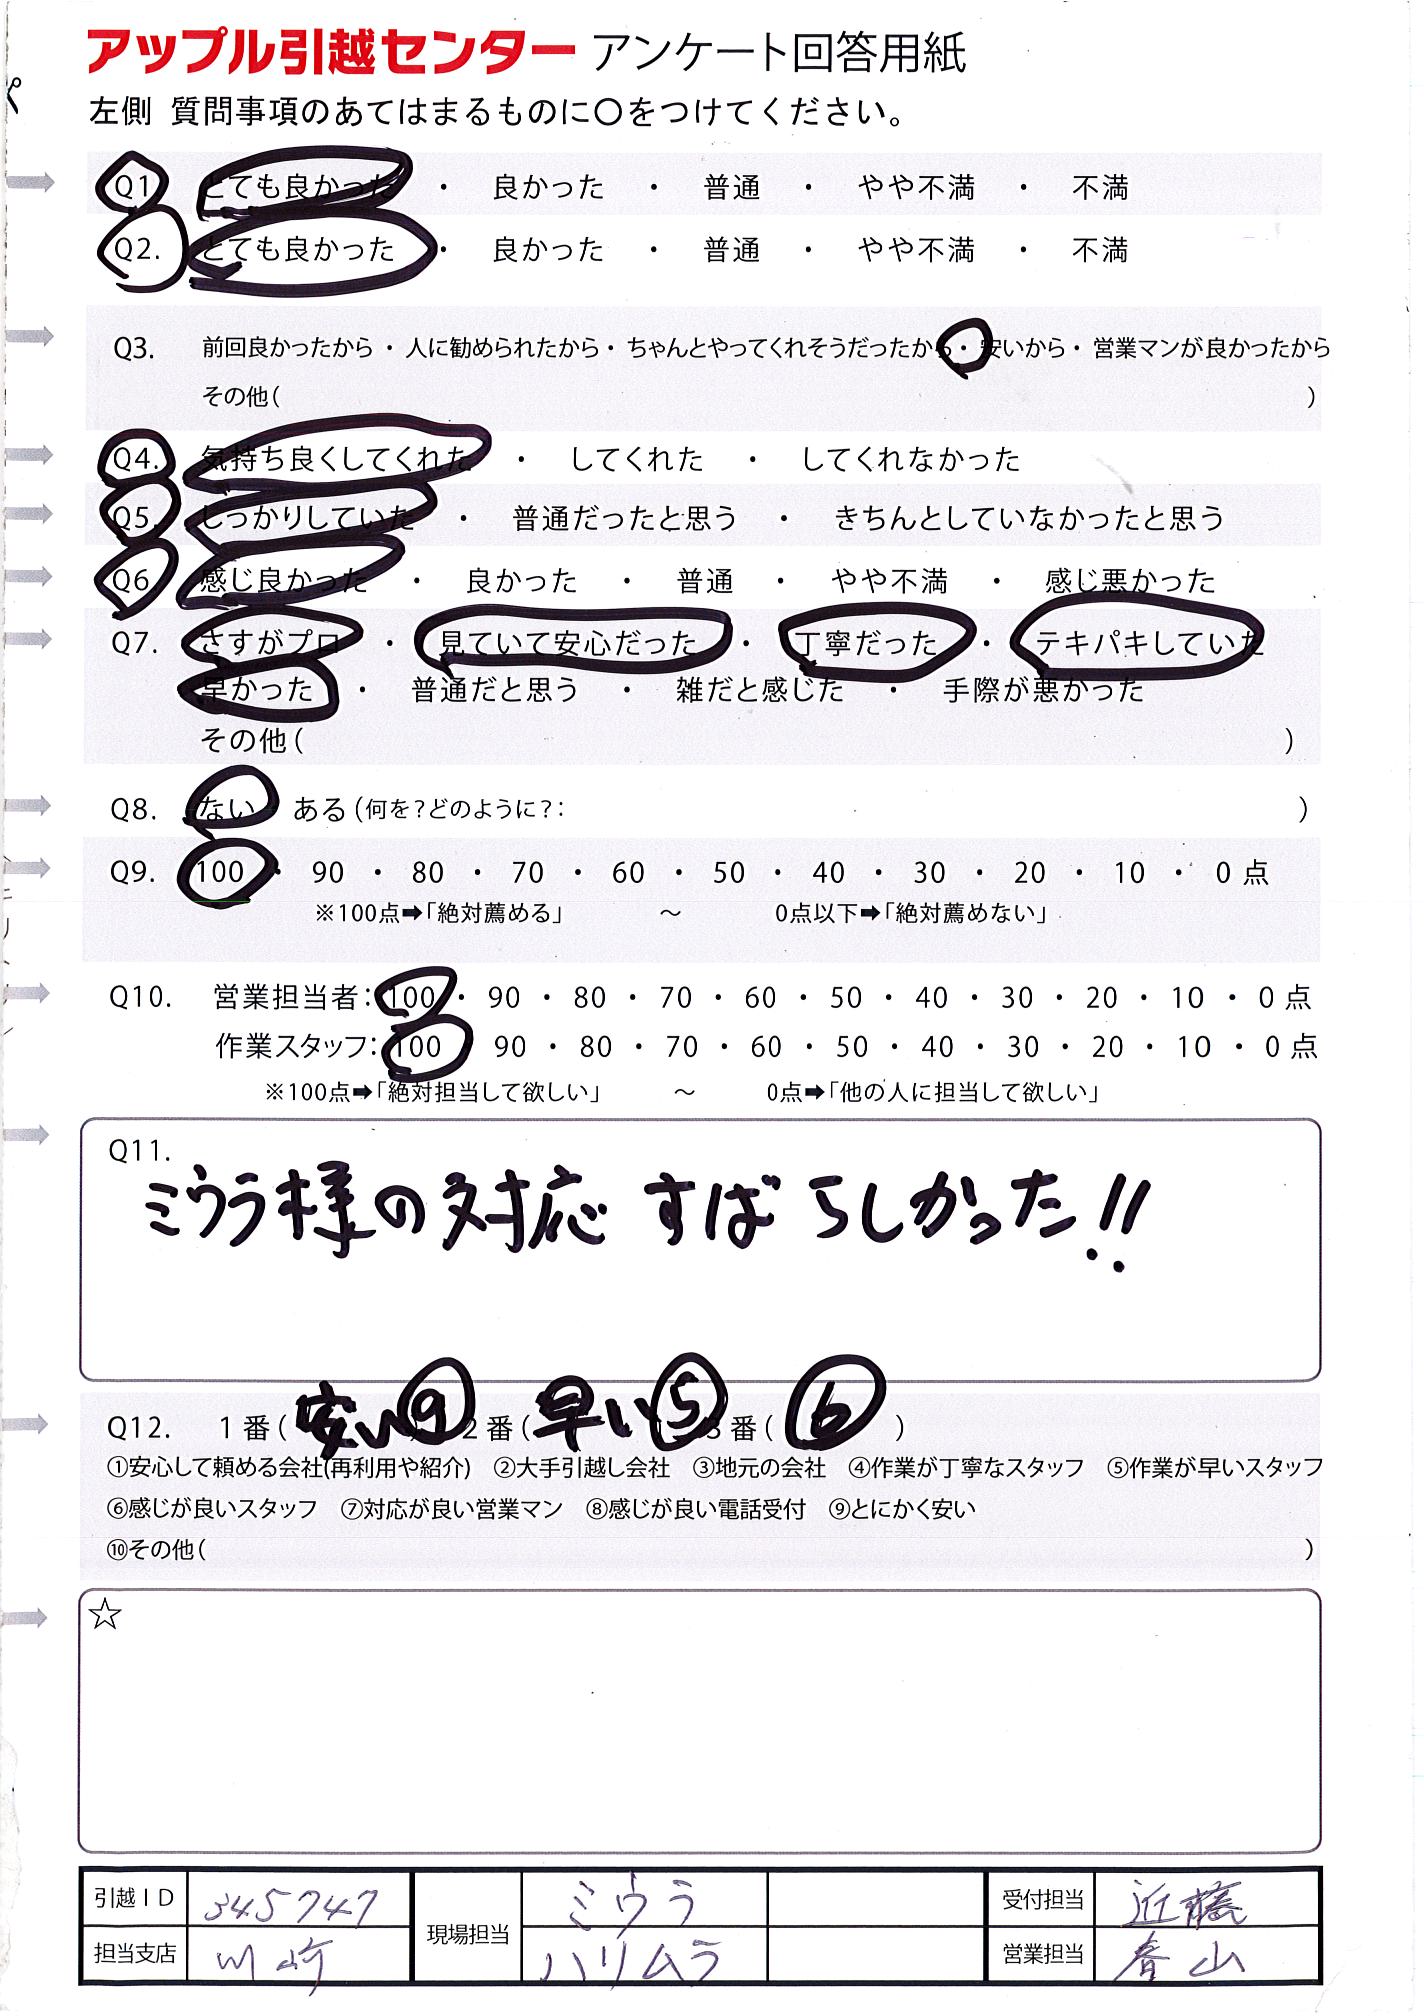 アップル引越センター アンケート回答用紙
左側 質問事項のあてはまるものに〇をつけてください。
Q1 とても良かった ・ 良かった ・ 普通 ・ やや不満 ・ 不満
Q2. とても良かった ・ 良かった ・ 普通 ・ やや不満 ・ 不満
Q3. 前回良かったから・人に勧められたから・ちゃんとやってくれそうだったから・安いから・営業マンが良かったから
その他( )
Q4. 気持ち良くしてくれた ・ してくれた ・ してくれなかった
Q5. しっかりしていた ・ 普通だったと思う ・ きちんとしていなかったと思う
Q6 感じ良かった ・ 良かった ・ 普通 ・ やや不満 ・ 感じ悪かった
Q7. さすがプロ ・ 見ていて安心だった ・ 丁寧だった ・ テキパキしていた
早かった ・ 普通だと思う ・ 雑だと感じた ・ 手際が悪かった
その他( )
Q8. ない ある(何を?どのように?: )
Q9. 100 ・ 90 ・ 80 ・ 70 ・ 60 ・ 50 ・ 40 ・ 30 ・ 20 ・ 10 ・ 0点
※100点➡「絶対薦める」 ～ 0点以下➡「絶対薦めない」
Q10. 営業担当者:100 ・ 90 ・ 80 ・ 70 ・ 60 ・ 50 ・ 40 ・ 30 ・ 20 ・ 10 ・ 0点
作業スタッフ:100 90 ・ 80 ・ 70 ・ 60 ・ 50 ・ 40 ・ 30 ・ 20 ・ 10 ・ 0点
※100点➡「絶対担当して欲しい」 ～ 0点➡「他の人に担当して欲しい」
Q11.
ミウラ様の対応 すばらしかった!!
Q12. 1番(安い⑨) 2番(早い⑤) 3番(⑥)
①安心して頼める会社(再利用や紹介) ②大手引越し会社 ③地元の会社 ④作業が丁寧なスタッフ ⑤作業が早いスタッフ
⑥感じが良いスタッフ ⑦対応が良い営業マン ⑧感じが良い電話受付 ⑨とにかく安い
⑩その他( )
☆
引越ID 345747 現場担当 ミウラ 受付担当 近藤
担当支店 川崎 ハリムラ 営業担当 春山